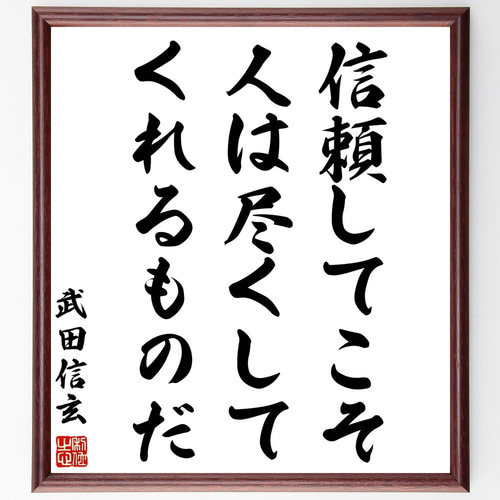 信頼してこそ
人は尽くして
くれるものだ
武田信玄